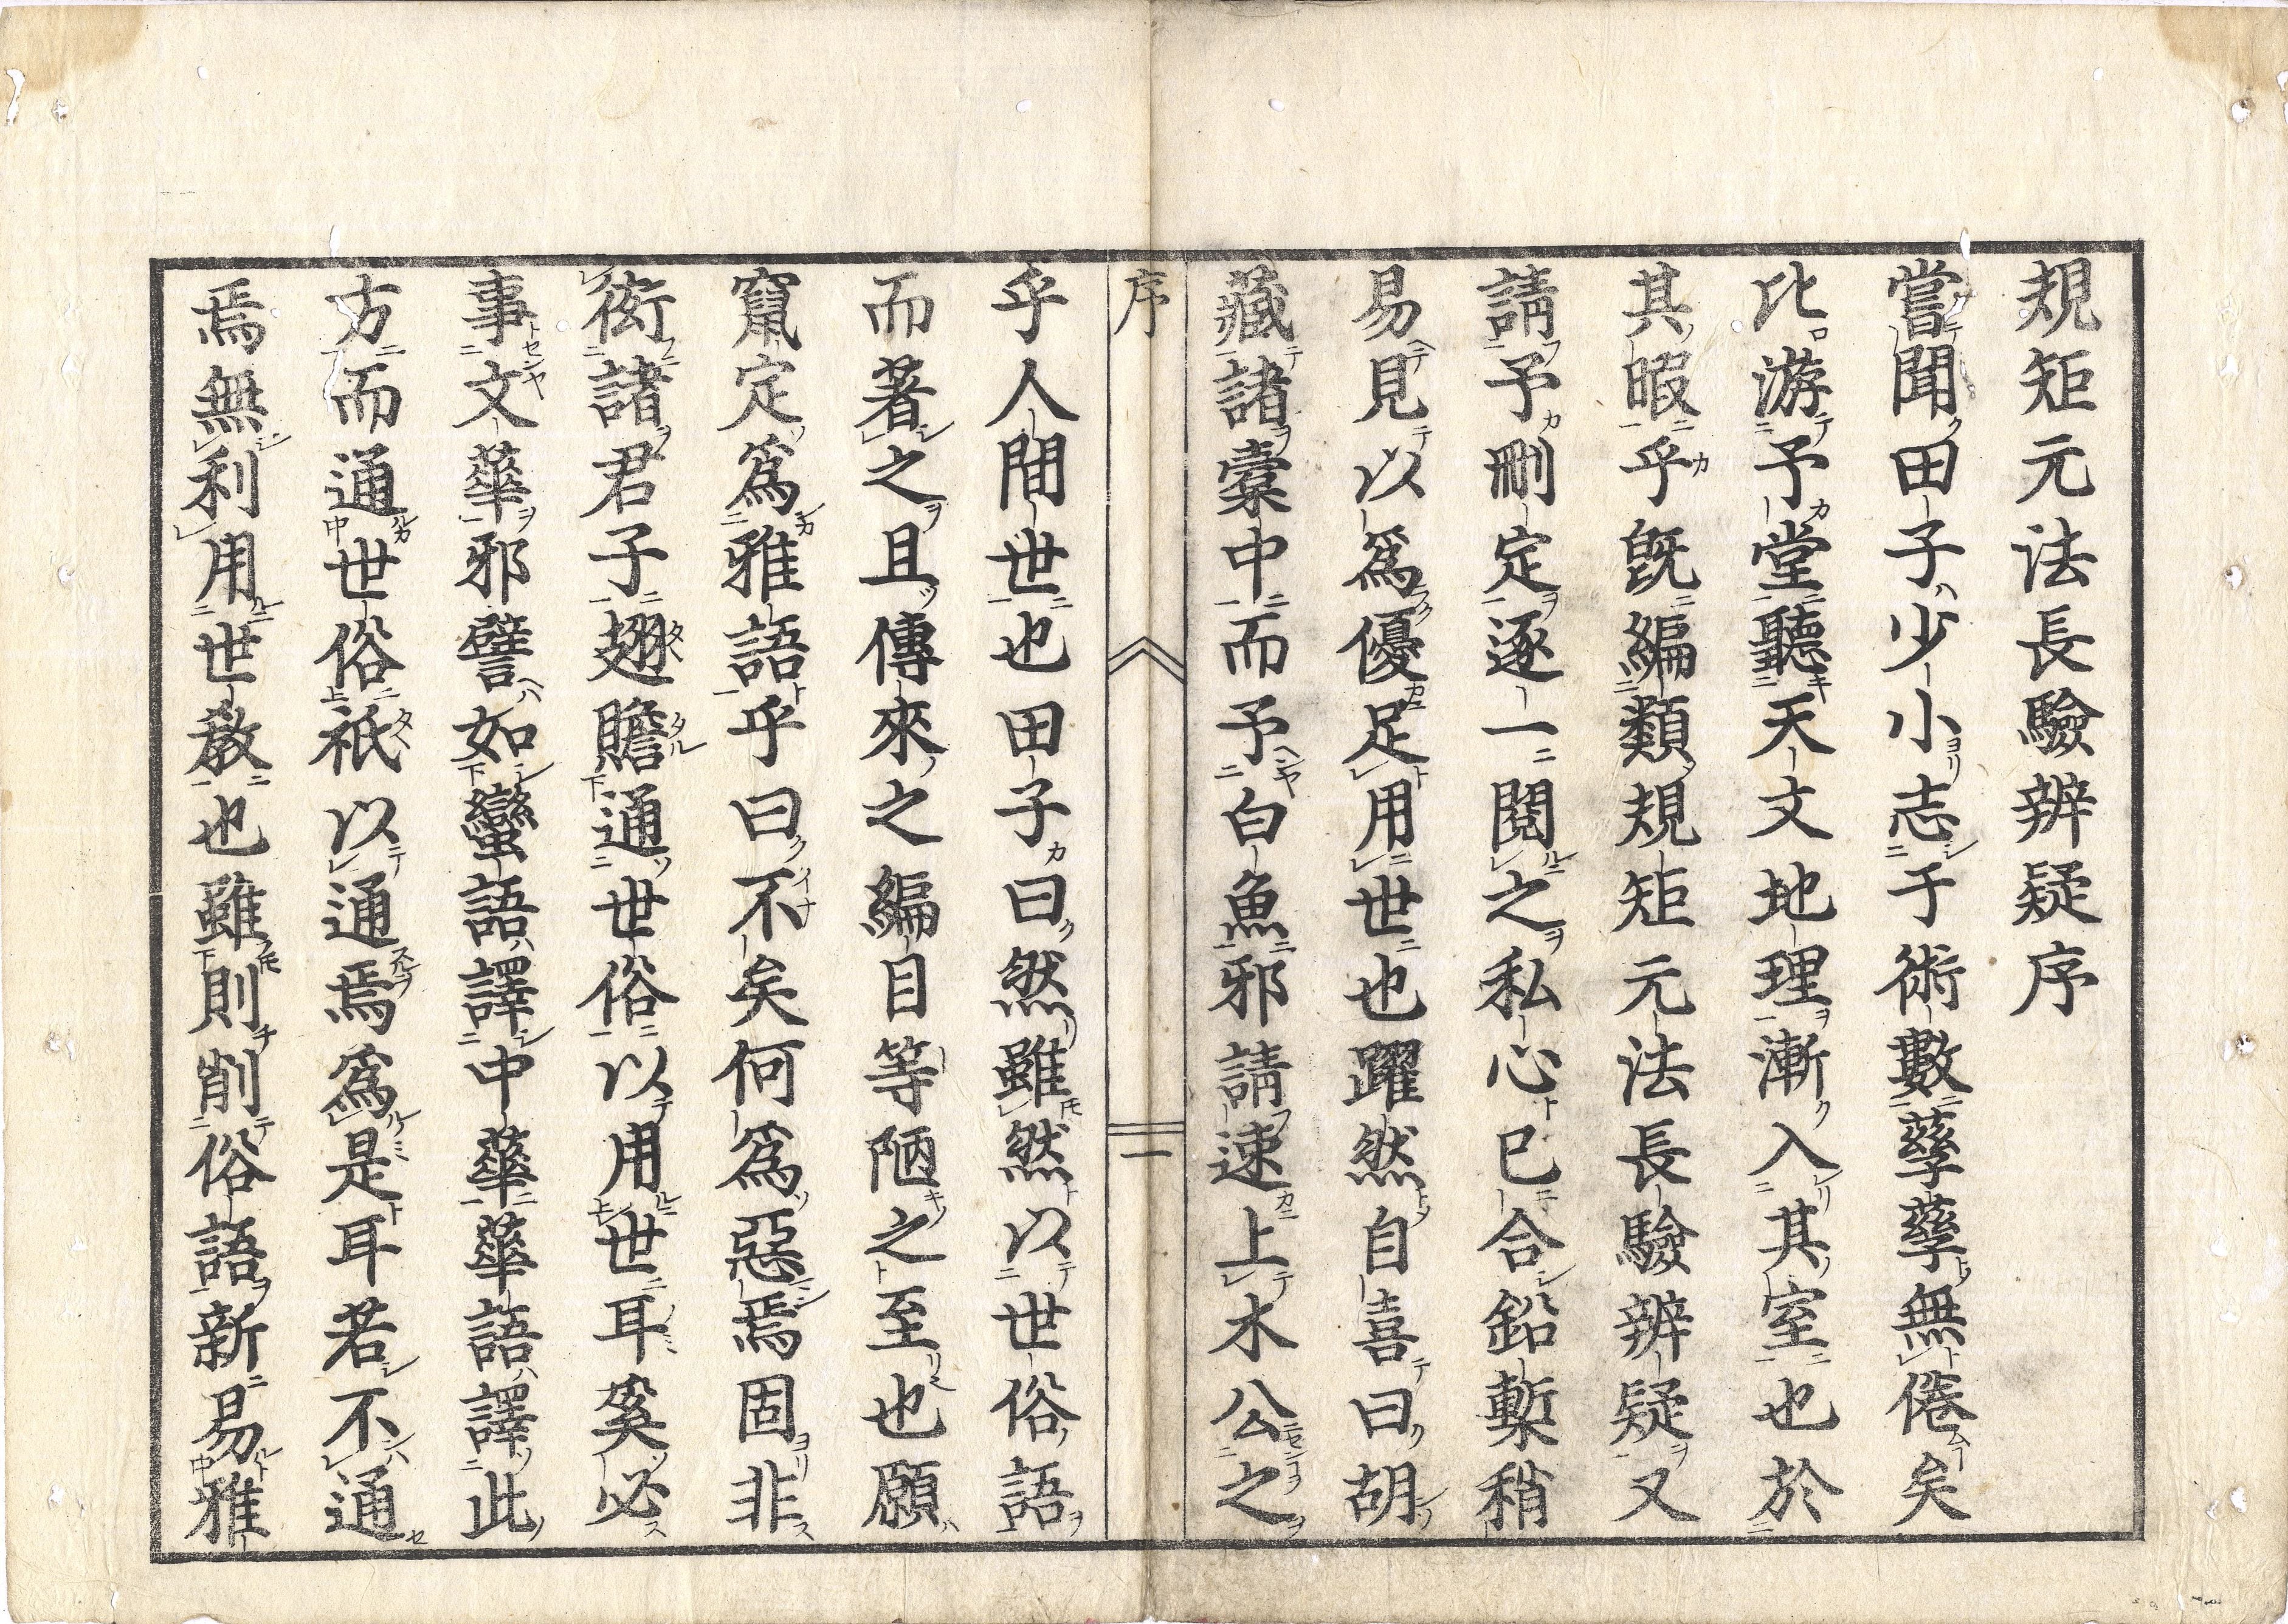 規矩元法長驗辨疑序
嘗聞田子少小志于術數孳孳無倦矣
比游予堂聽天文地理漸入其室也於
其暇乎旣編類規矩元法長驗辨疑又
請予刪定逐一閱之私心已合鉛槧稍
易見以爲優足用世也躍然自喜曰胡
藏諸槖中而予白魚邪請速上木公之
序
一
乎人間世也田子曰然雖然以世俗語
而著之且傳來之編目等陋之至也願
竄定爲雅語乎曰不矣何爲惡焉固非
衒諸君子翅贍通世俗以用世耳奚必
事文華邪譬如蠻語譯中華華語譯此
方而通世俗祇以通焉爲是耳若不通
焉無利用世敎也雖則削俗語新易雅